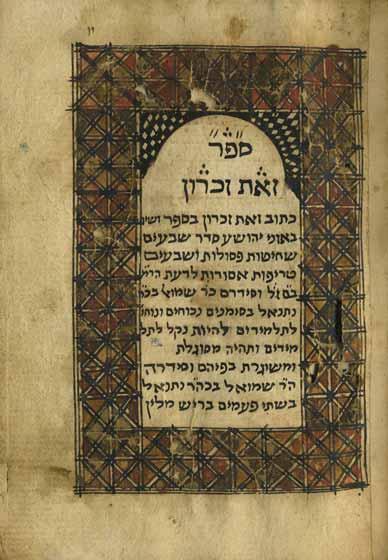 ספר
זאת זכרון
כתוב זאת זכרון בספר ושים
באזני יהושע סדר שבעים
שחיטות פסולות ושבעים
טריפות אסורות לדעת
ז״ל וסידרם כ״ר
נתנאל בסימנים נכוחים
לתלמידים להיות נקל לתל
מידים ותהיה מסוגלת
ומשוגרת בפיהם וסידרה
הר׳ שמואל בכה״ר נתנאל
בשתי פעמים בריש מלין